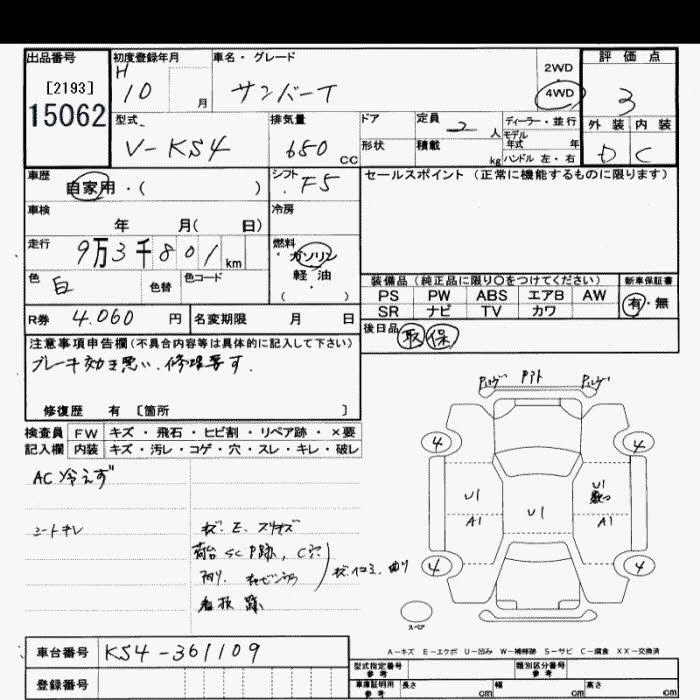 出品番号 初度登録年月 車名・グレード 2WD 評価点
[2193] H 10 月 サンバーT 4WD 3
15062 型式 排気量 ドア 定員 2 人 ディーラー・並行 外装 内装
V-KS4 650 cc 形状 積載 kg モデル年式 年 ハンドル 左・右 D C
車歴 自家用・( ) シフト F5 セールスポイント(正常に機能するものに限ります)
車検 年 月( 日) 冷房
走行 9万3千801km 燃料 ・ガソリン
軽・油
( )
色 白 色替 色コード 装備品(純正品に限り○をつけてください) 新車保証書
PS PW ABS エアB AW 有・無
SR ナビ TV カワ
R券 4.060 円 名変期限 月 日 後日品 取 保
注意事項申告欄(不具合内容等は具体的に記入して下さい)
ブレーキ効き悪い、修理要す.
修復歴 有 [箇所 ]
検査員 FW キズ・飛石・ヒビ割・リペア跡・×要
記入欄 内装 キズ・汚レ・コゲ・穴・スレ・キレ・破レ
AC 冷えず
シートキレ
荷台 SC P跡, C穴
4 4
U1 U1 U1
A1 A1
4 4
スペア
A-キズ E-エクボ U-凹み W-補修跡 S-サビ C-腐食 XX-交換済
車台番号 KS4-361109 型式指定番号 参考 類別区分番号 参考
登録番号 車庫証明用 参考 長さ cm 幅 cm 高さ cm